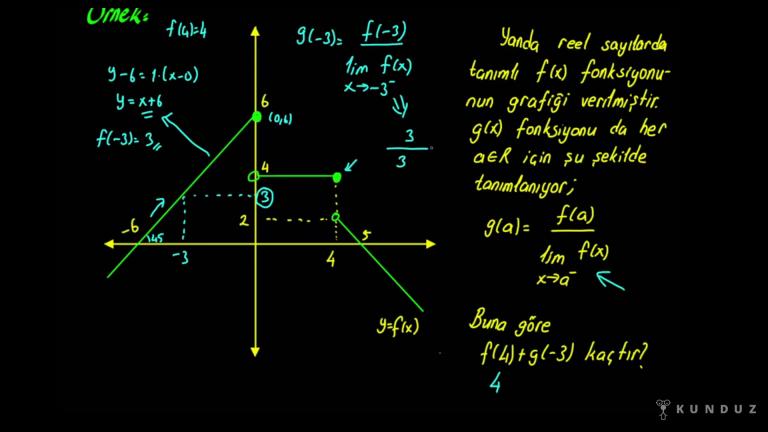 Örnek:
f(4)=4
y-6=1.(x-0)
y=x+6
f(-3)=3
g(-3)= f(-3)
lim f(x)
x→-3⁻
3
3
6
(0,6)
4
3
2
-6
45
-3
4
5
y=f(x)
Yanda reel sayılarda
tanımlı f(x) fonksiyonu-
nun grafiği verilmiştir.
g(x) fonksiyonu da her
a∈R için şu şekilde
tanımlanıyor;
g(a)= f(a)
lim f(x)
x→a⁻
Buna göre
f(4)+g(-3) kaçtır?
4
KUNDUZ